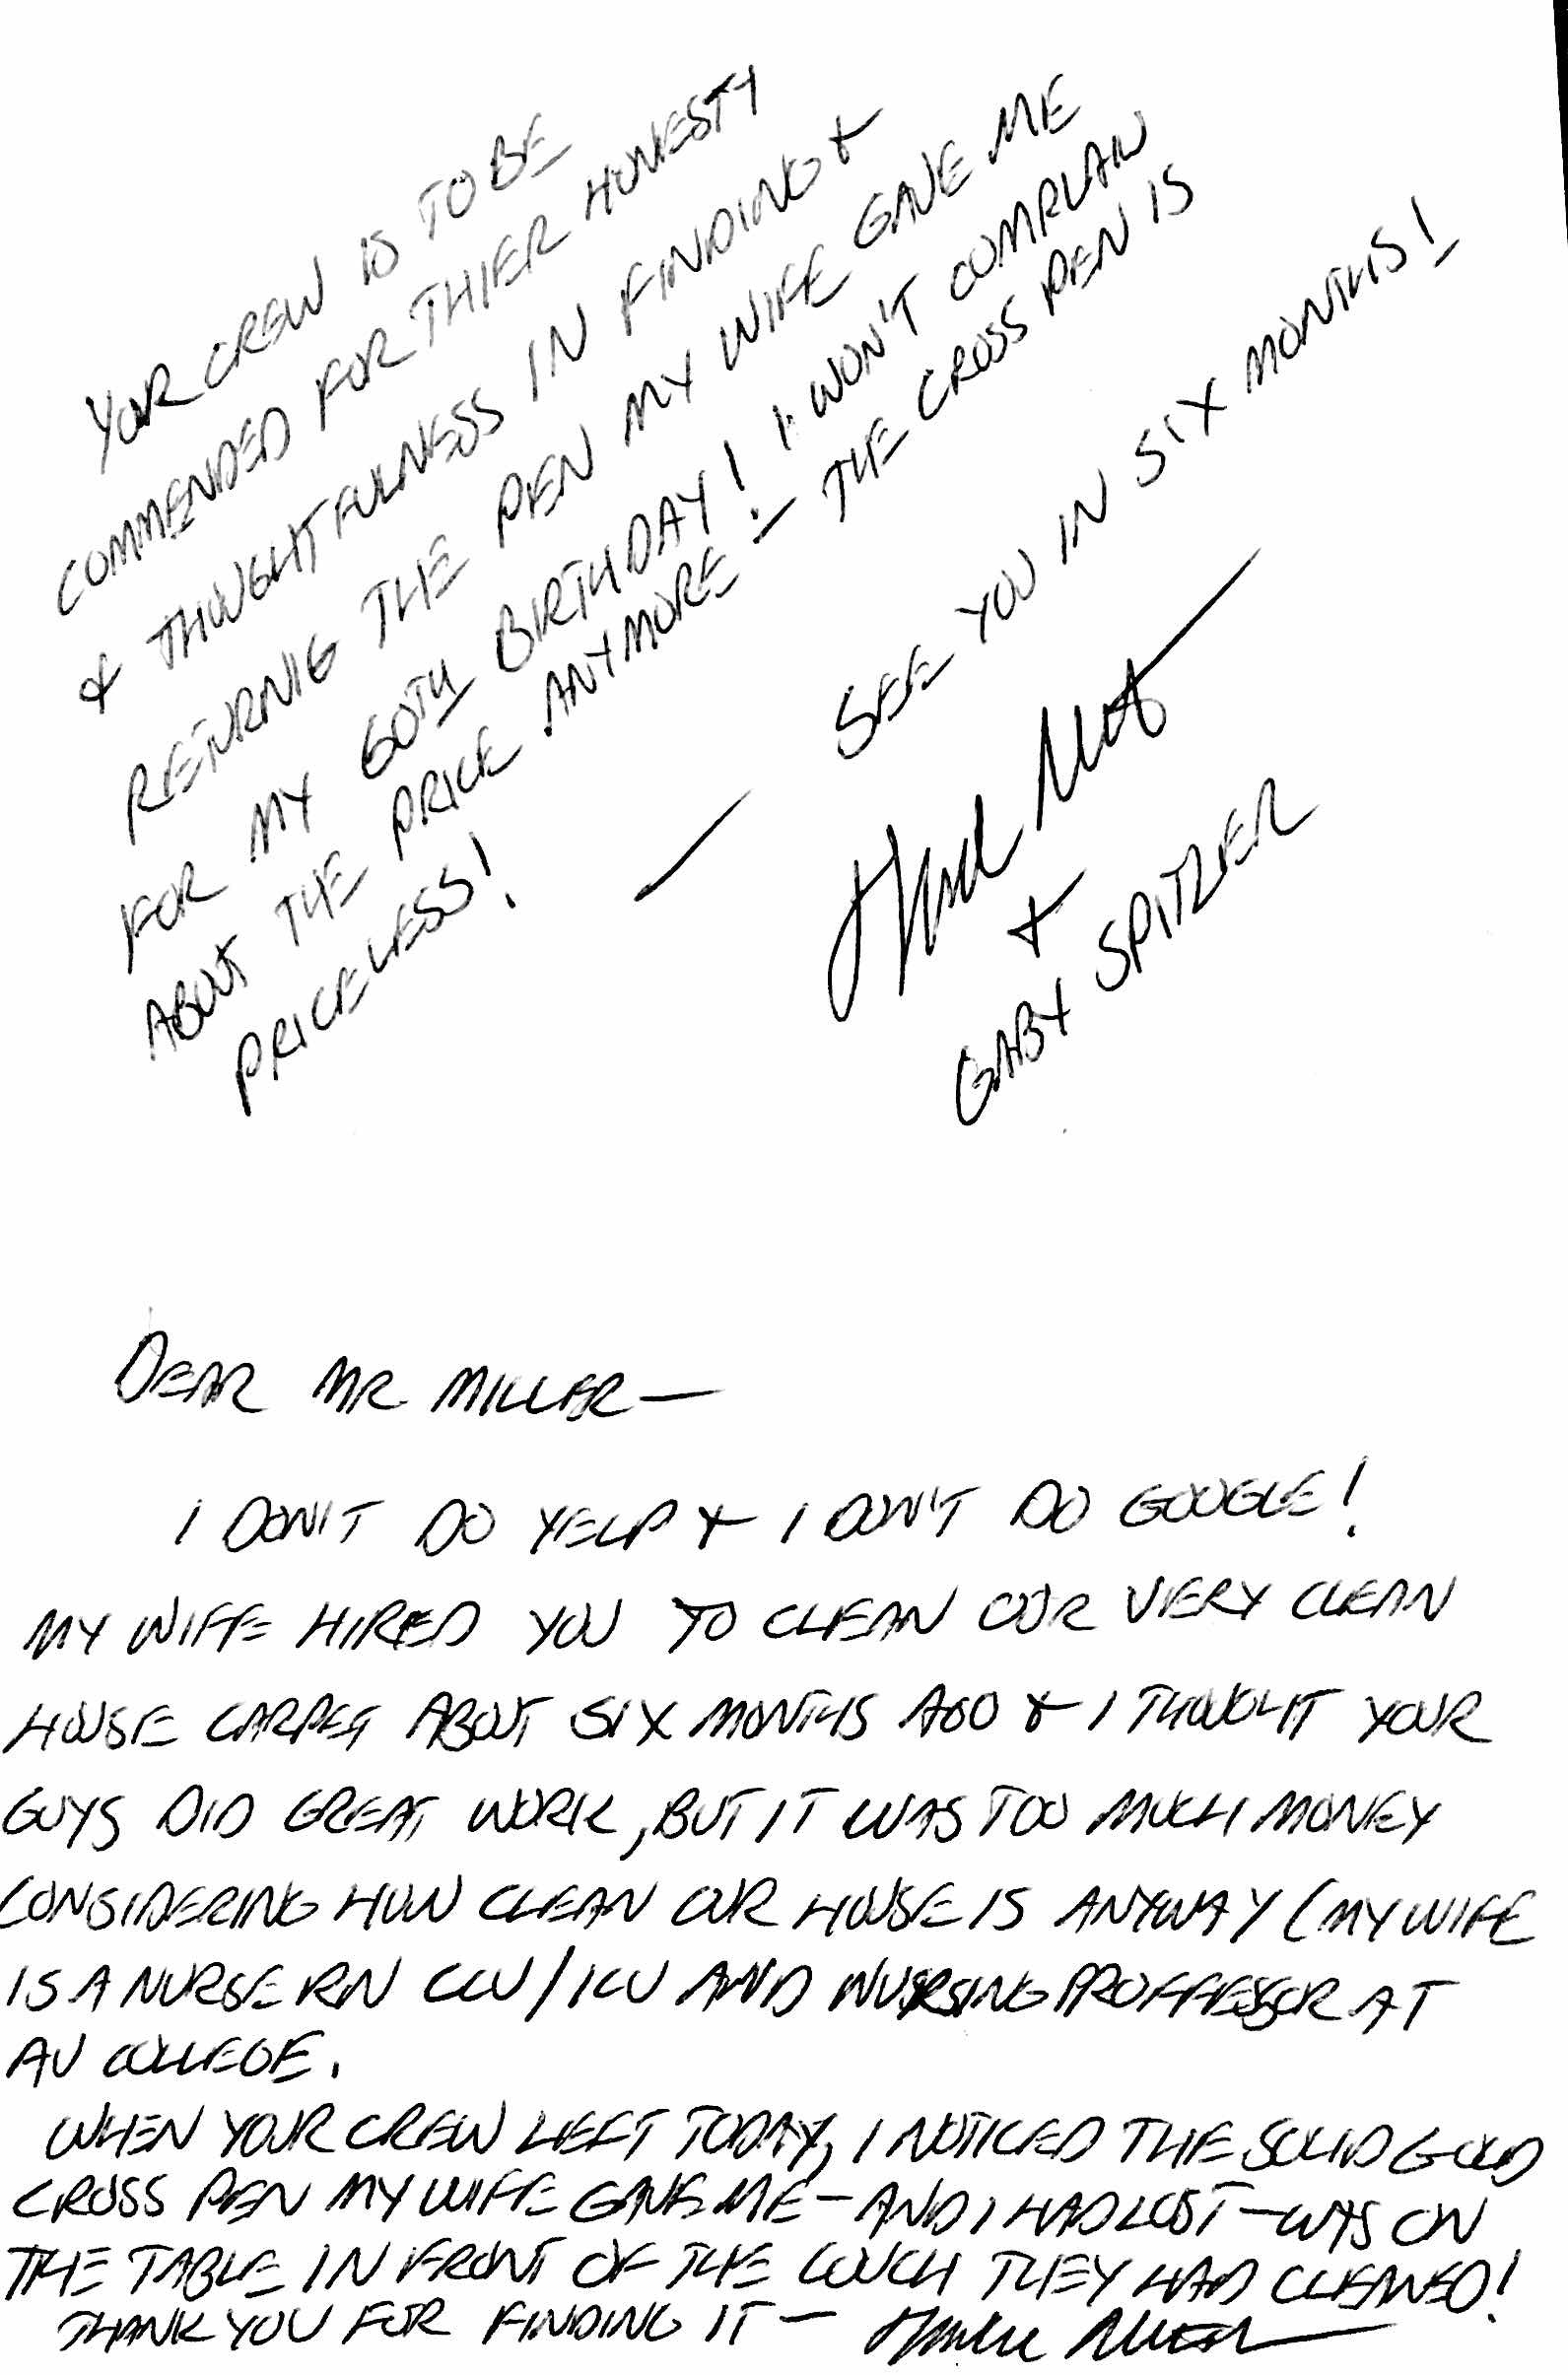 YOUR CREW IS TO BE
COMMENDED FOR THIER HONESTY
& THOUGHTFULNESS IN FINDING &
RETURNIG THE PEN MY WIFE GAVE ME
FOR MY 60TH BIRTHDAY! I WON'T COMPLAIN
ABOUT THE PRICE ANYMORE! — THE CROSS PEN IS
PRICELESS!
— SEE YOU IN SIX MONTHS!
&
GABY SPITZER
DEAR MR. MILLER —
I DON'T DO YELP & I DON'T DO GOOGLE!
MY WIFE HIRED YOU TO CLEAN OUR VERY CLEAN
HOUSE CARPET ABOUT SIX MONTHS AGO & I THOUGHT YOUR
GUYS DID GREAT WORK, BUT IT WAS TOO MUCH MONEY
CONSIDERING HOW CLEAN OUR HOUSE IS ANYWAY (MY WIFE
IS A NURSE RN CCU/ICU AND NURSING PROFFESSOR AT
AV COLLEGE.
WHEN YOUR CREW LEFT TODAY, I NOTICED THE SOLID GOLD
CROSS PEN MY WIFE GAVE ME — AND I HAD LOST — WAS ON
THE TABLE IN FRONT OF THE COUCH THEY HAD CLEANED!
THANK YOU FOR FINDING IT —